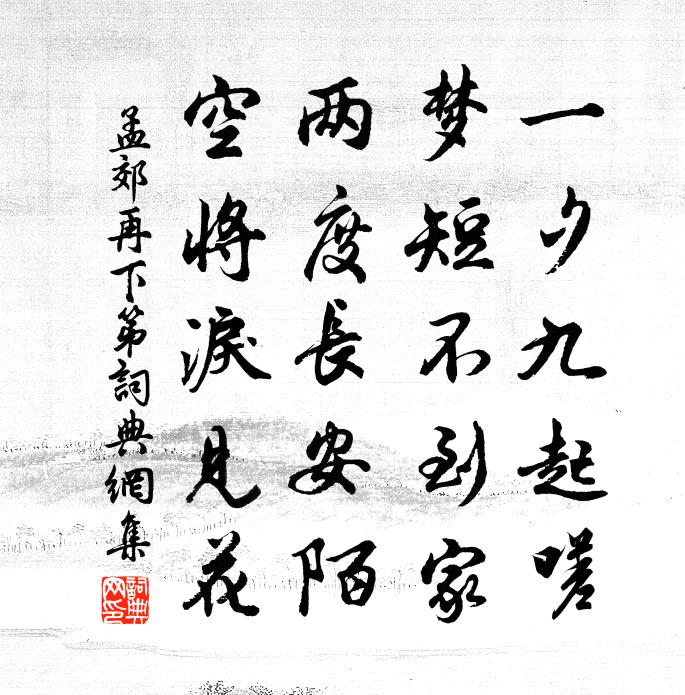 一夕九起嗟
梦短不到家
两度長安陌
空將淚見花
孟郊再下第詞典網集
詞典网印